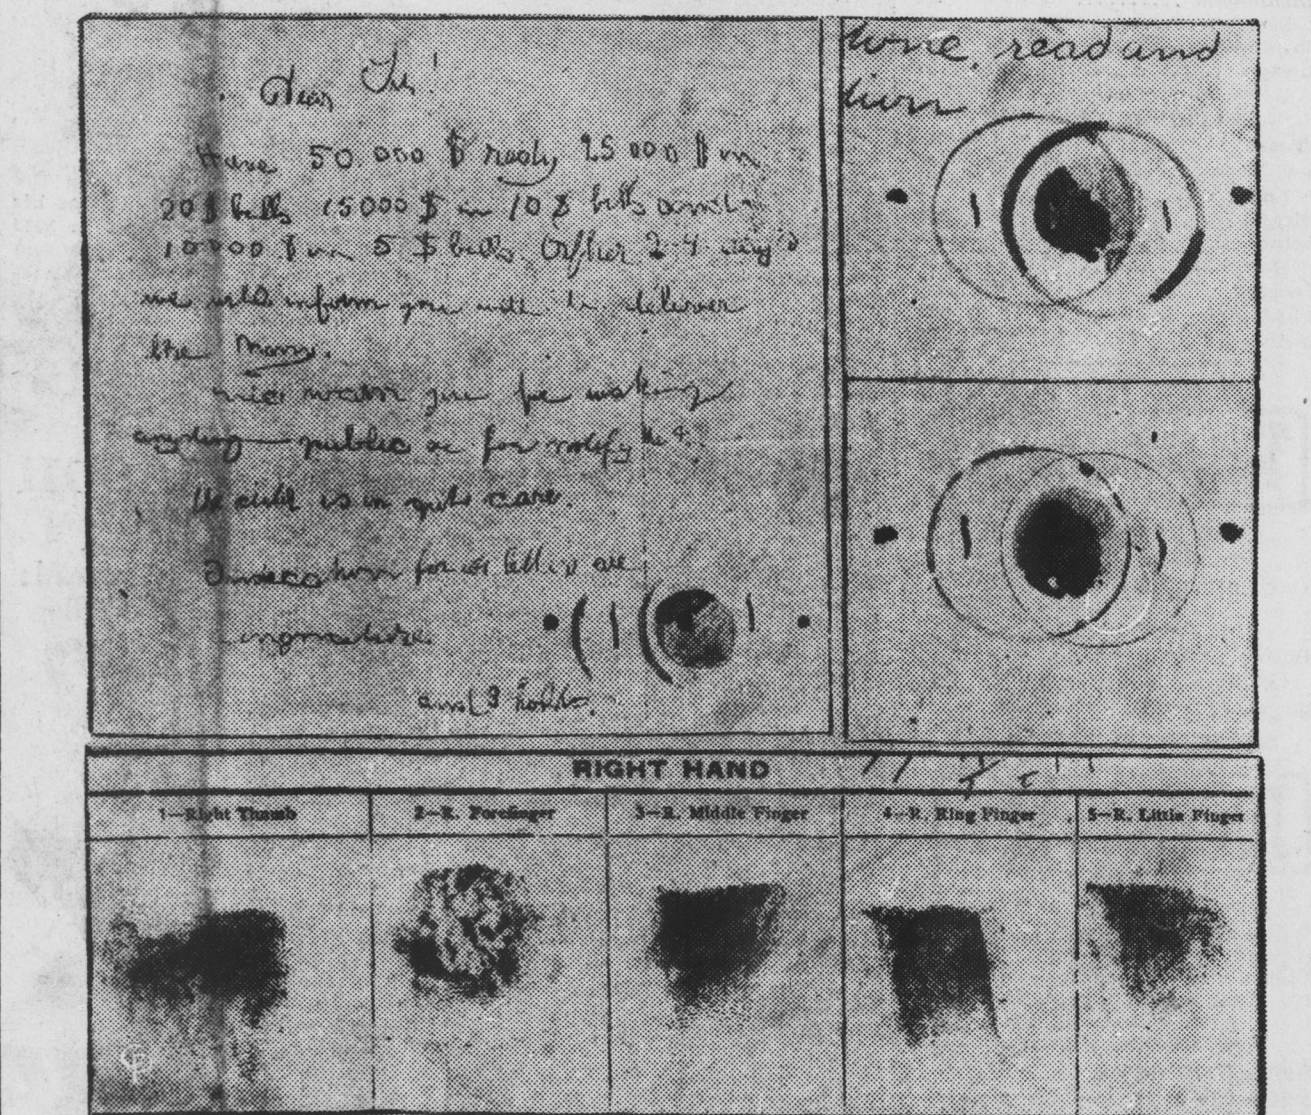 Dear Sir!
Have 50.000 $ redy 25000 $ in
20 $ bills 15000 $ in 10 $ bills and
10000 $ in 5 $ bills. After 2-4 days
we will inform you were to deliver
the Mony.
We warn you for making
anyding public or for notify the
the child is in gute care.
for letters are
singnature
and 3 hohls.
tone, read and
RIGHT HAND
1—Right Thumb
2—R. Forefinger
3—R. Middle Finger
4—R. Ring Finger
5—R. Little Finger